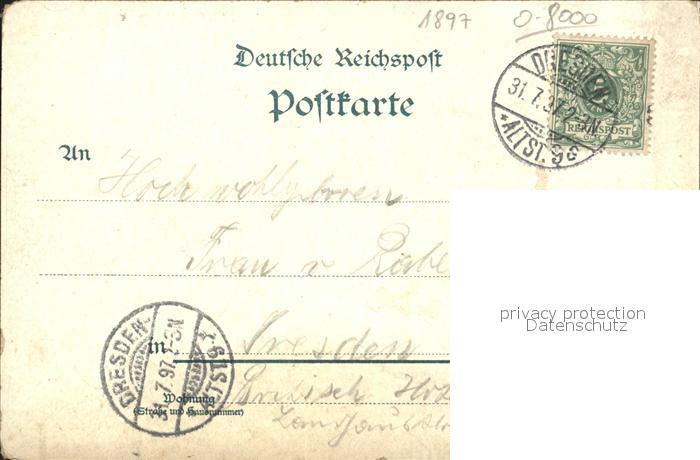 1897 0-8000
Deutsche Reichspost
Postkarte
DRESDEN
31.7.97
*ALTST.
REICHSPOST
An
Hochwohlgeboren
Frau v
DRESDEN-
31.7.97
ALTST.
in Dresden
Wohnung
(Straße und Hausnummer)
privacy protection
Datenschutz